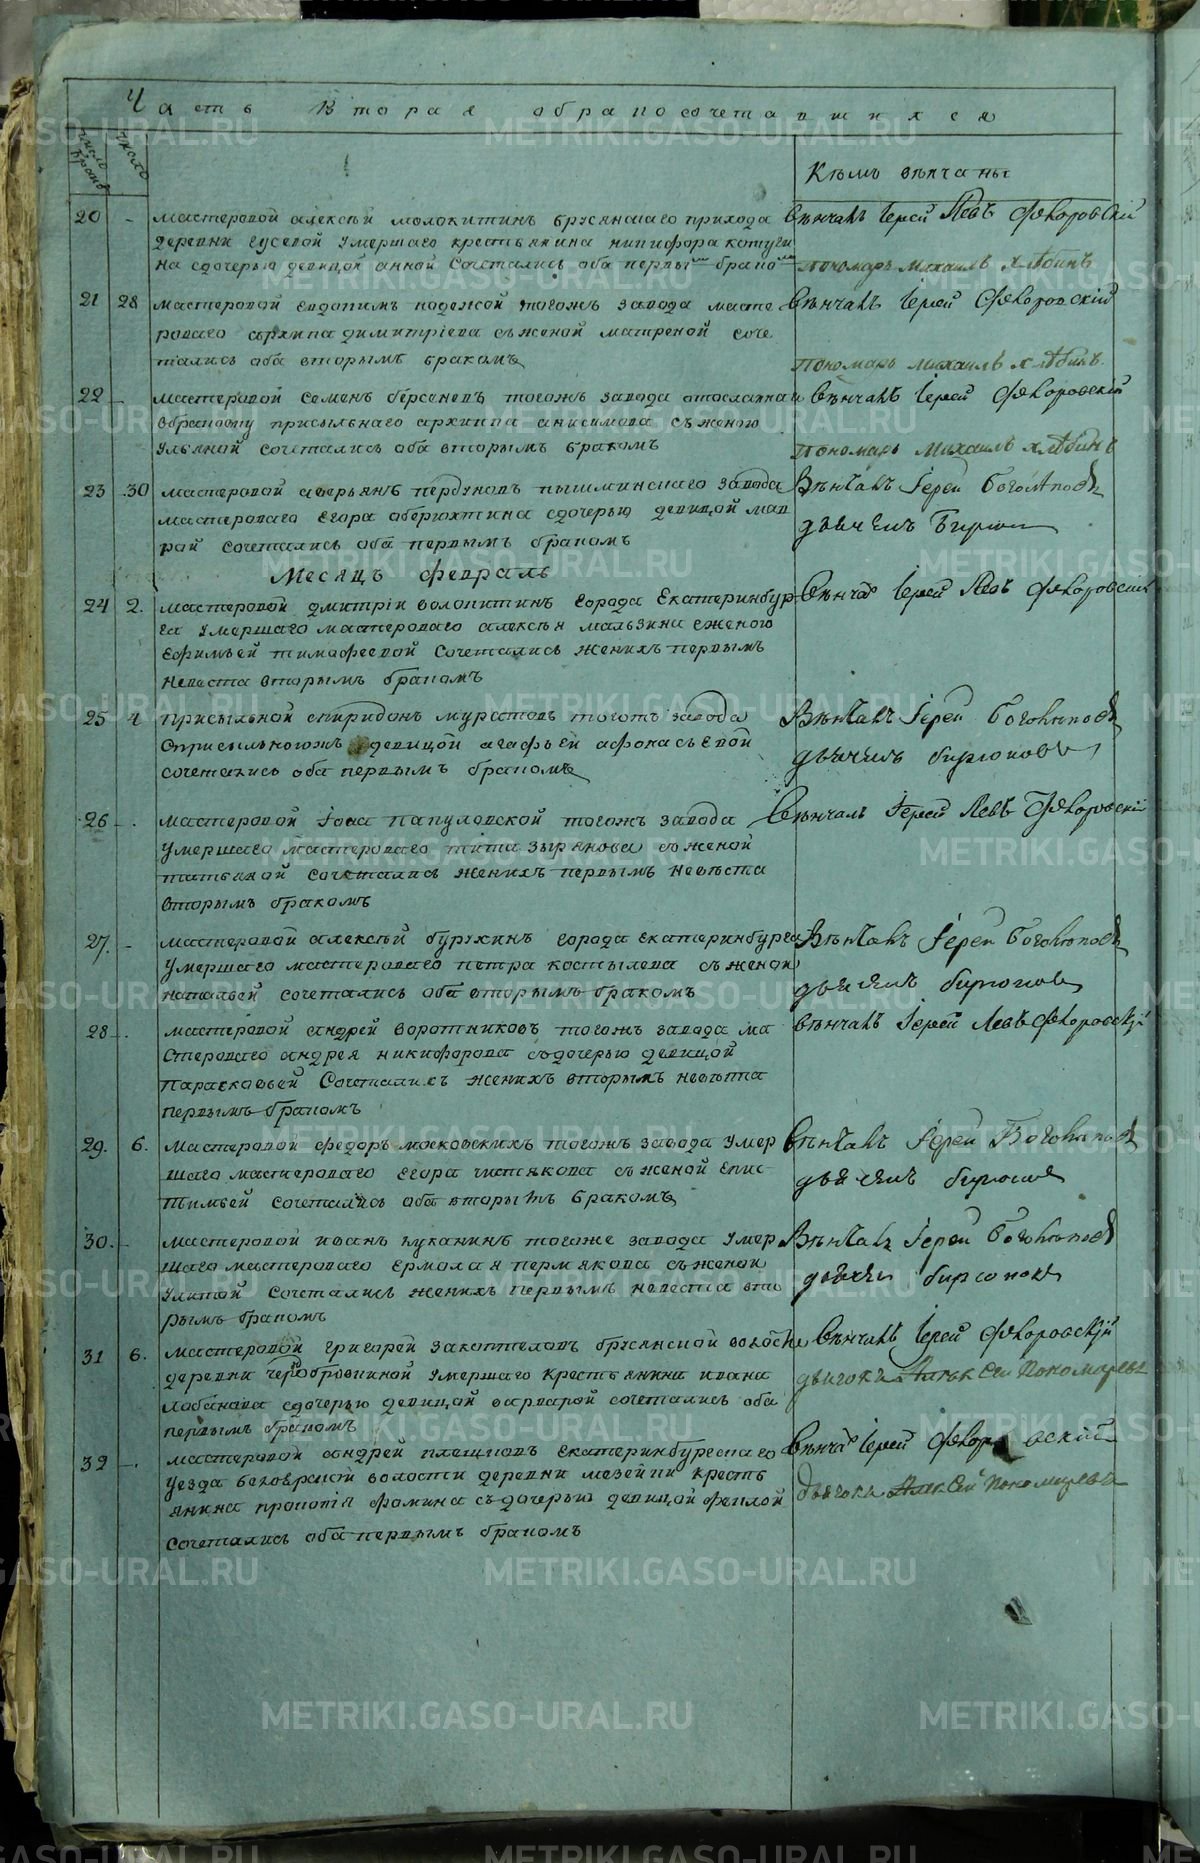 Часть Вторая обракосочетавшихся
число браковъ
число
Кѣмъ вѣнчаны
20 - мастеровой алексѣй молокитинъ брусянскаго прихода
деревни гусевой умершаго крестьянина никифора котуги
на сдочерью девицой анной Сочетались оба первымъ бракомъ
Вѣнчалъ Іерей Левъ Ѳяворовскій
пономарь михаилъ хлѣбинъ
21 28 мастеровой евдокимъ тогожъ завода масте
роваго архипа димитріева съженой матреной соче
тались оба вторымъ бракомъ
Вѣнчалъ Іерей Ѳяворовскій
пономарь михаилъ хлѣбинъ
22 - мастеровой семенъ берсеневъ тогожъ завода
присыльнаго архипа анисимова съженою
ульяной сочетались оба вторымъ бракомъ
Вѣнчалъ Іерей Ѳяворовскій
пономарь михаилъ хлѣбинъ
23 30 мастеровой аверьянъ пердуновъ пышминскаго завода
мастероваго Егора оберюхтина сдочерью девицой мав
рой сочетались оба первымъ бракомъ
Вѣнчалъ Іерей Боголѣповъ
дьячекъ
Месяцъ февраль
24 2. мастеровой дмитрій волокитинъ города Екатеринбур
га умершаго мастероваго алексѣя мальзина сженою
Ефимьей тимофеевой сочетались женихъ первымъ
невеста вторымъ бракомъ
Вѣнчалъ Іерей Левъ Ѳяворовскій
25 4 присыльной спиридонъ муратовъ тогожъ завода
сприсыльногожъ девицой агафьей афонасьевой
сочетались оба первымъ бракомъ
Вѣнчалъ Іерей Боголѣповъ
дьячекъ бирюковъ
26 - мастеровой Іона папуловской тогожъ завода
умершаго мастероваго тита зырянова съженой
татьяной сочетались женихъ первымъ невѣста
вторымъ бракомъ
Вѣнчалъ Іерей Левъ Ѳяворовскій
27. - мастеровой алексѣй бурухинъ города екатеринбурга
умершаго мастероваго петра костылева съженой
натальей сочетались оба вторымъ бракомъ
Вѣнчалъ Іерей Боголѣповъ
дьячекъ бирюковъ
28 - мастеровой андрей воротниковъ тогожъ завода ма
стероваго андрея никифорова съдочерью девицой
параскавьей сочетались женихъ вторымъ невѣста
первымъ бракомъ
вѣнчалъ Іерей Левъ Ѳяворовскій
29. 6. мастеровой федоръ московскихъ тогожъ завода умер
шаго мастероваго Егора чистякова съженой епис
тимьей сочетались оба вторымъ бракомъ
Вѣнчалъ Іерей Боголѣповъ
дьячекъ бирюковъ
30. - мастеровой иванъ куканинъ тогоже завода умер
шаго мастероваго ермолая пермякова съженой
улитой сочетались женихъ первымъ невеста вто
рымъ бракомъ
Вѣнчалъ Іерей Боголѣповъ
дьячекъ бирюковъ
31 6. мастеровой григорей закоптеловъ брусянской волости
деревни умершаго крестьянина ивана
лобанова сдочерью девицой варварой сочетались оба
первымъ бракомъ
Вѣнчалъ Іерей Ѳяворовскій
дьячокъ Алексей Пономаревъ
32 - мастеровой андрей плешковъ екатеринбурскаго
уезда волости деревни мезенки кресть
янина прокопія фомина съдочерью девицой феклой
сочетались оба первымъ бракомъ
Вѣнчалъ Іерей Ѳяворовскій
дьячокъ Алексей Пономаревъ
METRIKI.GASO-URAL.RU